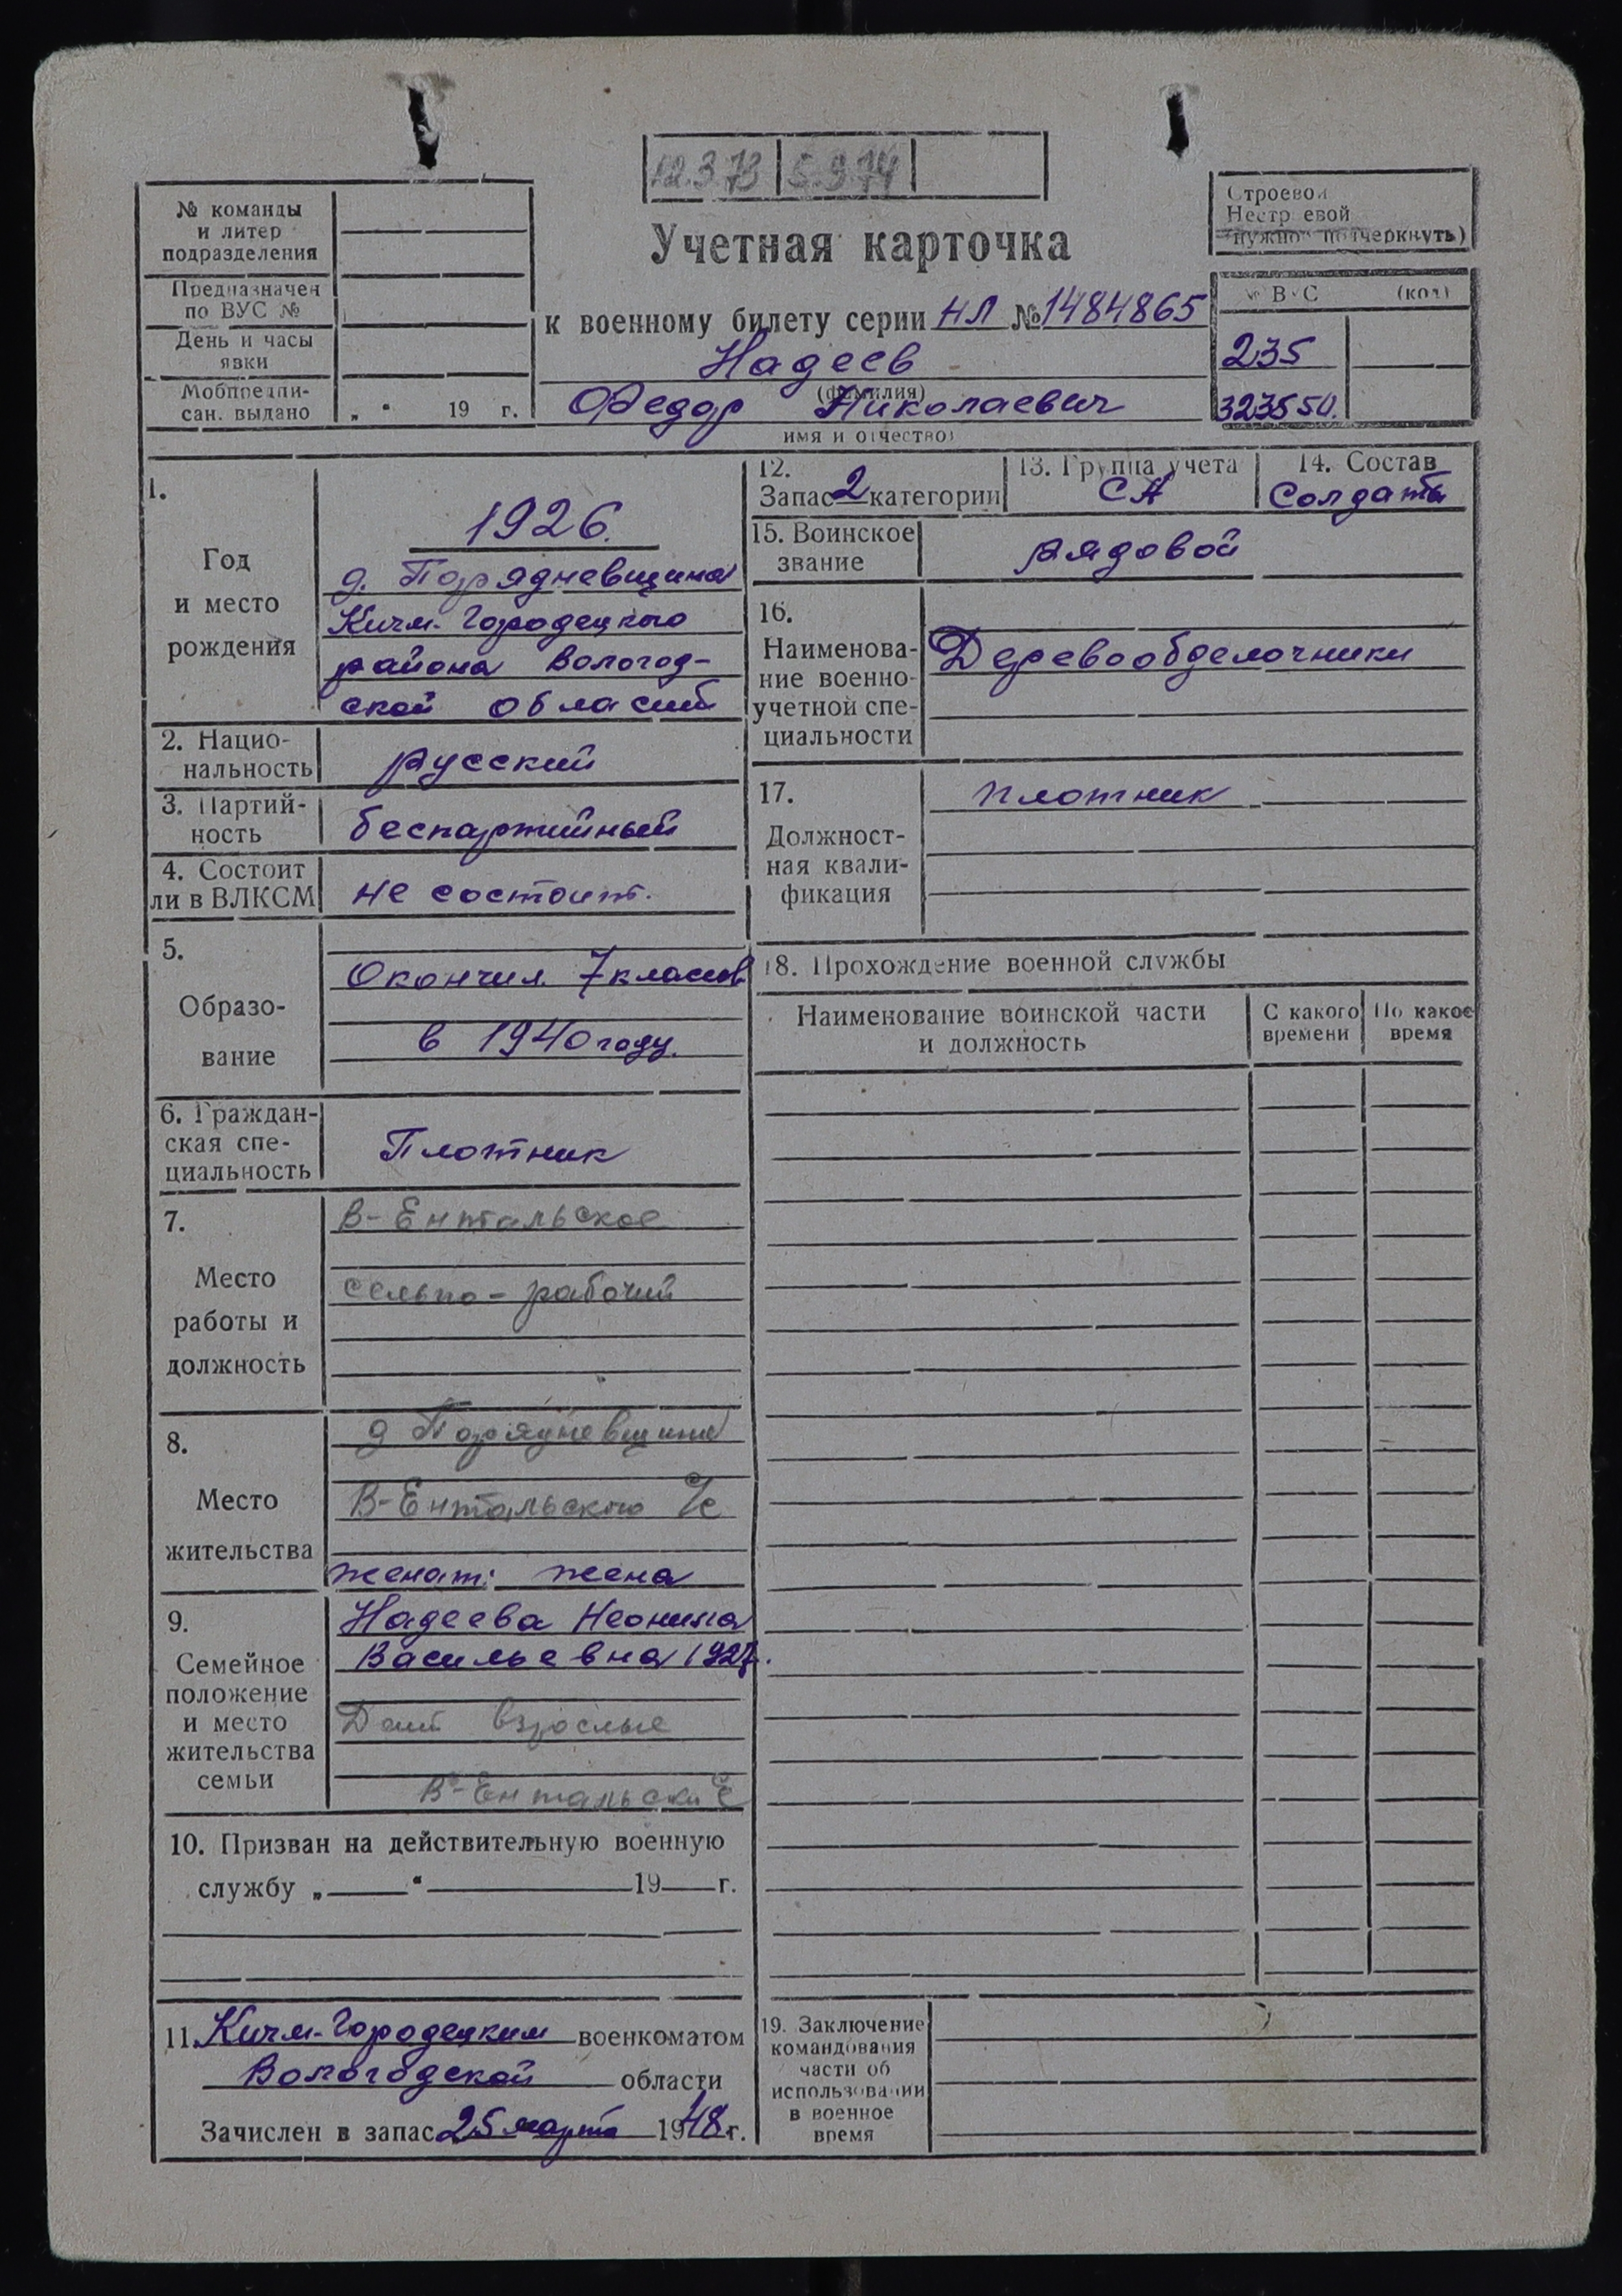 12.3.73 5.9.74
Строевой
Нестроевой
(нужное подчеркнуть)
№ команды
и литер
подразделения
Предназначен
по ВУС №
День и часы
явки
Мобпредпи-
сан. выдано „ “ 19 г.
Учетная карточка
к военному билету серии НЛ № 1484865
Надеев
(фамилия)
Федор Николаевич
имя и отчество)
№ ВУС (код)
235
323550.
1.
Год
и место
рождения
1926.
д. Порядневщина
Кичм-Городецкого
района Вологод-
ской области
2. Нацио-
нальность
русский
3. Партий-
ность
беспартийный
4. Состоит
ли в ВЛКСМ
не состоит.
5.
Образо-
вание
Окончил 7 классов
в 1940 году.
6. Граждан-
ская спе-
циальность
Плотник
7.
Место
работы и
должность
В-Ентальское
сельпо - рабочий
8.
Место
жительства
д Порядневщина
В-Ентальского с/с
женат: жена
9.
Семейное
положение
и место
жительства
семьи
Надеева Неонила
Васильевна 1927.
Дети взрослые
В-Ентальский
10. Призван на действительную военную
службу „ “ 19 г.
11. Кичм-Городецким военкоматом
Вологодской области
Зачислен в запас 25 марта 1948 г.
12.
Запас 2 категории
13. Группа учета
СА
14. Состав
Солдаты
15. Воинское
звание
рядовой
16.
Наименова-
ние военно-
учетной спе-
циальности
Деревообделочники
17.
Должност-
ная квали-
фикация
плотник
18. Прохождение военной службы
Наименование воинской части
и должность
С какого
времени
По какое
время
19. Заключение
командования
части об
использовании
в военное
время